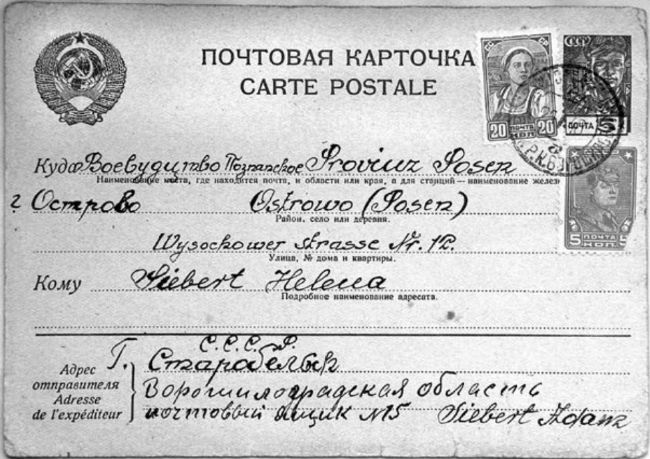 ПОЧТОВАЯ КАРТОЧКА
CARTE POSTALE
СССР
20 КОП. 20
ПОЧТА
Куда Воевудцтво Познанское Provinz Posen
Наименование места, где находится почта, и области или края, а для станций — наименование желез
г. Острово Ostrowo (Posen)
Район, село или деревня.
Wysochower strasse Nr. 12.
Улица, № дома и квартиры.
Кому Siebert Helena
Подробное наименование адресата.
ПОЧТА
5 КОП. 5
С.С.С.Р.
Г. Старобельск
Адрес
отправителя
Adresse
de l'expéditeur
Ворошилоградская область
почтовый ящик №15 Siebert Adam